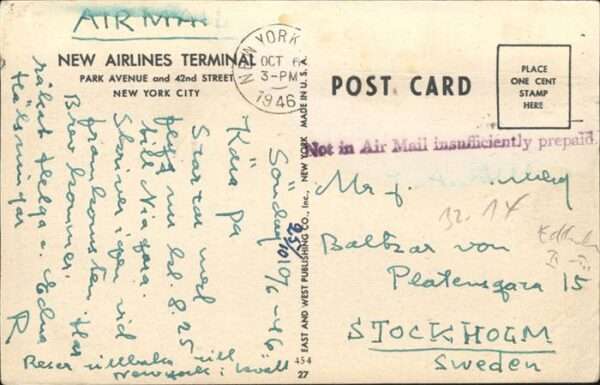 AIR MAIL
NEW AIRLINES TERMINAL
PARK AVENUE and 42nd STREET
NEW YORK CITY
NEW YORK
OCT 6
3-PM
1946
MADE IN U.S.A.
EAST AND WEST PUBLISHING CO., Inc., NEW YORK
POST CARD
PLACE
ONE CENT
STAMP
HERE
Not in Air Mail insufficiently prepaid.
Söndag 6/10 -46
Kära pa
Startar med
flyg nu kl. 8.25
till Niagara.
Skriver igen vid
framkomsten.
Brev kommer.
Helga o. Edna
Hälsningar
R
Reser tillbaka till
New York i kväll
Mr J.
Baltzar von
Platensgata 15
STOCKHOLM
Sweden
454
27